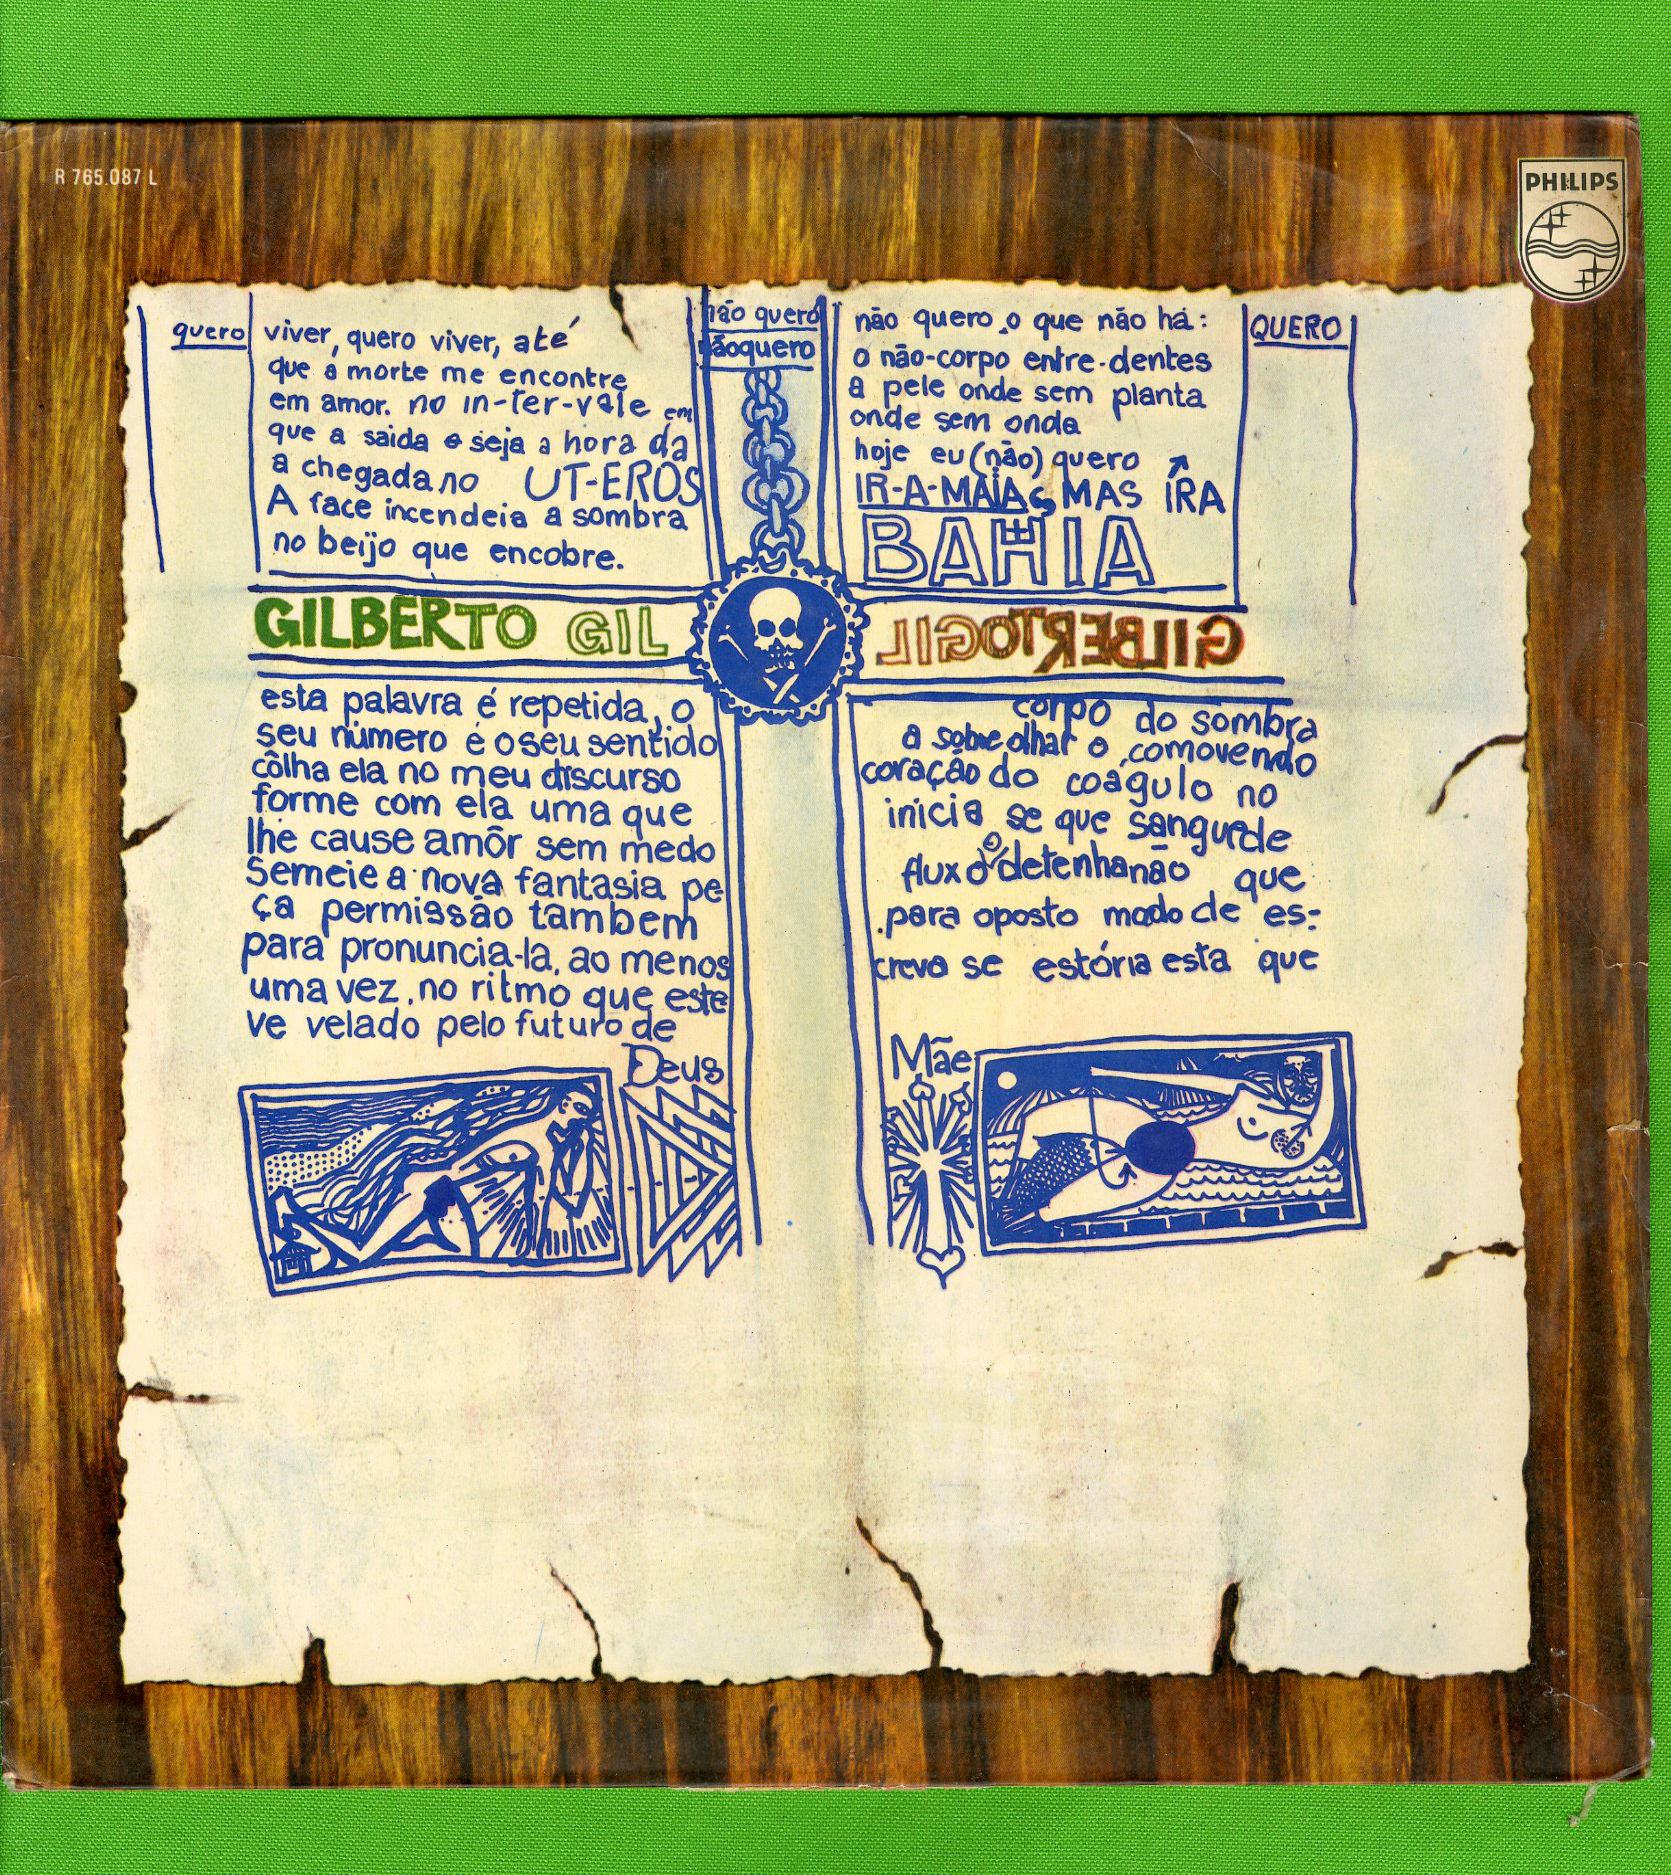 R 765.087 L
PHILIPS
quero
viver, quero viver, até
que a morte me encontre
em amor. no in-ter-vale em
que a saida e seja a hora da
a chegada no UT-EROS
A face incendeia a sombra
no beijo que encobre.
não quero
nãoquero
não quero o que não há:
o não-corpo entre-dentes
a pele onde sem planta
onde sem onda
hoje eu (não) quero
IR-A-MAIAS MAS ÍRA
BAHIA
QUERO
GILBERTO GIL
GILBERTOGIL
esta palavra é repetida, o
seu número é o seu sentido
côlha ela no meu discurso
forme com ela uma que
lhe cause amôr sem medo
Semeie a nova fantasia pe-
ça permissão tambem
para pronuncia-la, ao menos
uma vez, no ritmo que este
ve velado pelo futuro de
Deus
corpo do sombra
a sobre olhar o, comovendo
coração do coágulo no
inicia se que sangue de
fluxo detenha não que
.para oposto modo de es-
creva se estória esta que
Mãe